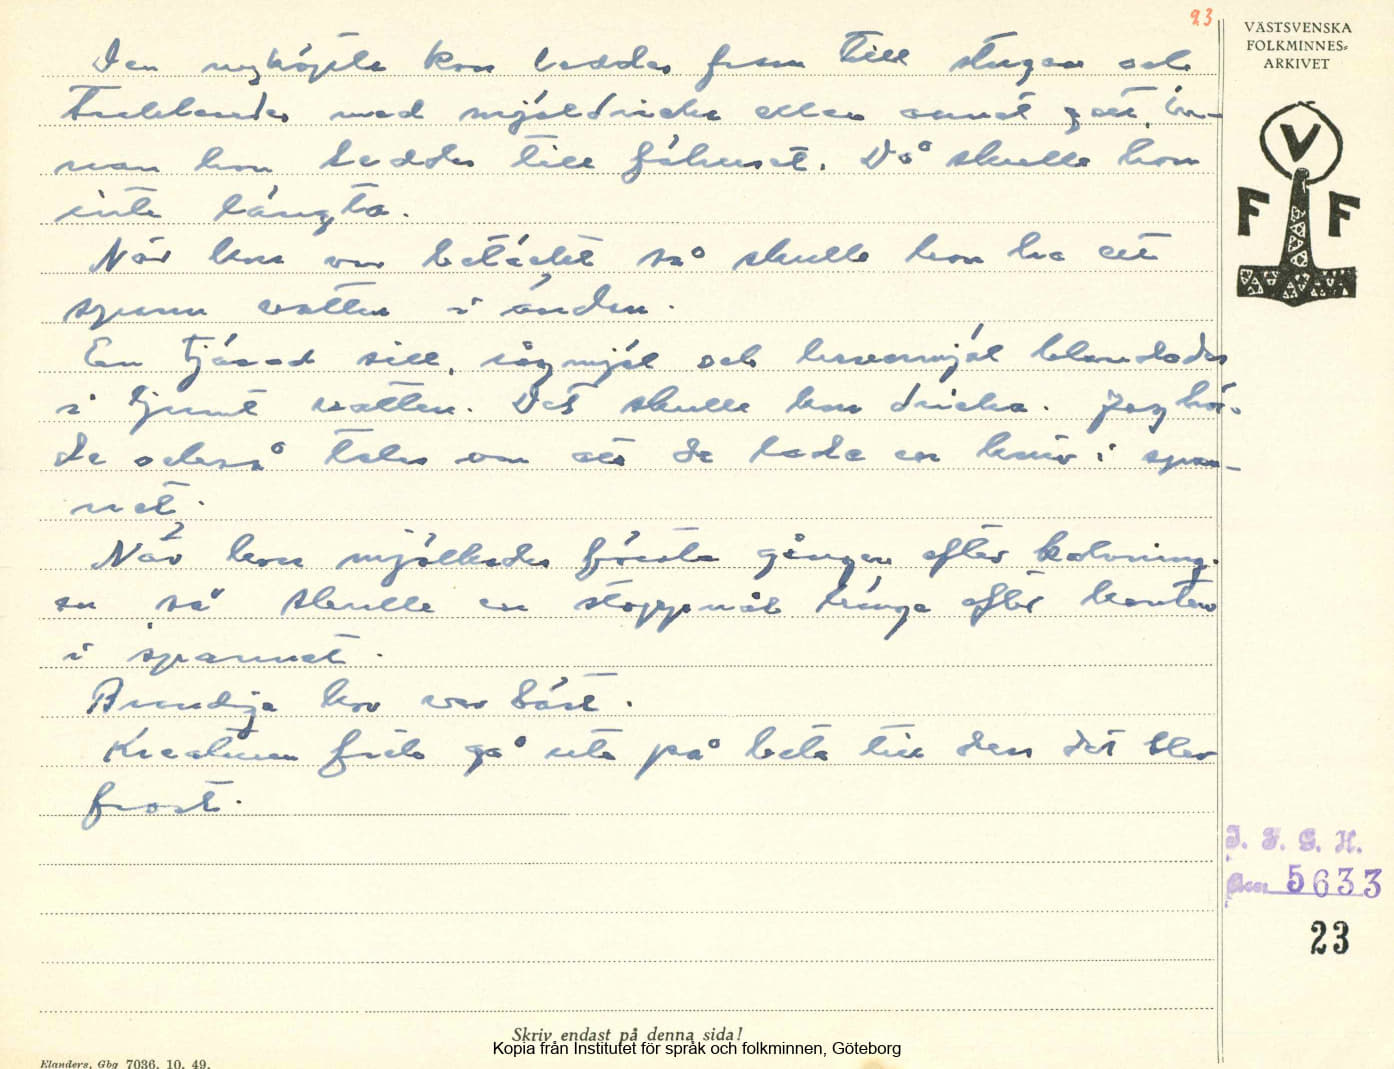 23
VÄSTSVENSKA
FOLKMINNES-
ARKIVET
V
F F
Den nyköpta kon leddes fram till stugan och
trakterades med mjöldricka eller annat gott, in-
nan hon leddes till fähuset. Då skulle hon
inte längta.
När kon var betäckt så skulle hon ha ett
spann vatten i änden.
En fjärad sill, rågmjöl och kornmjöl blandades
i ljumt vatten. Det skulle kon dricka. Jag hör-
de också talas om att de lade en kniv i span-
net.
När kon mjölkades första gången efter kalvning-
en så skulle en stoppnål hänga efter kanten
i spannet.
Brandiga kor var bäst.
Kreaturen fick gå ute på bete till dess det blev
frost.
I. F. G. H.
Acc. 5633
23
Skriv endast på denna sida!
Kopia från Institutet för språk och folkminnen, Göteborg
Elanders, Gbg 7036. 10. 49.